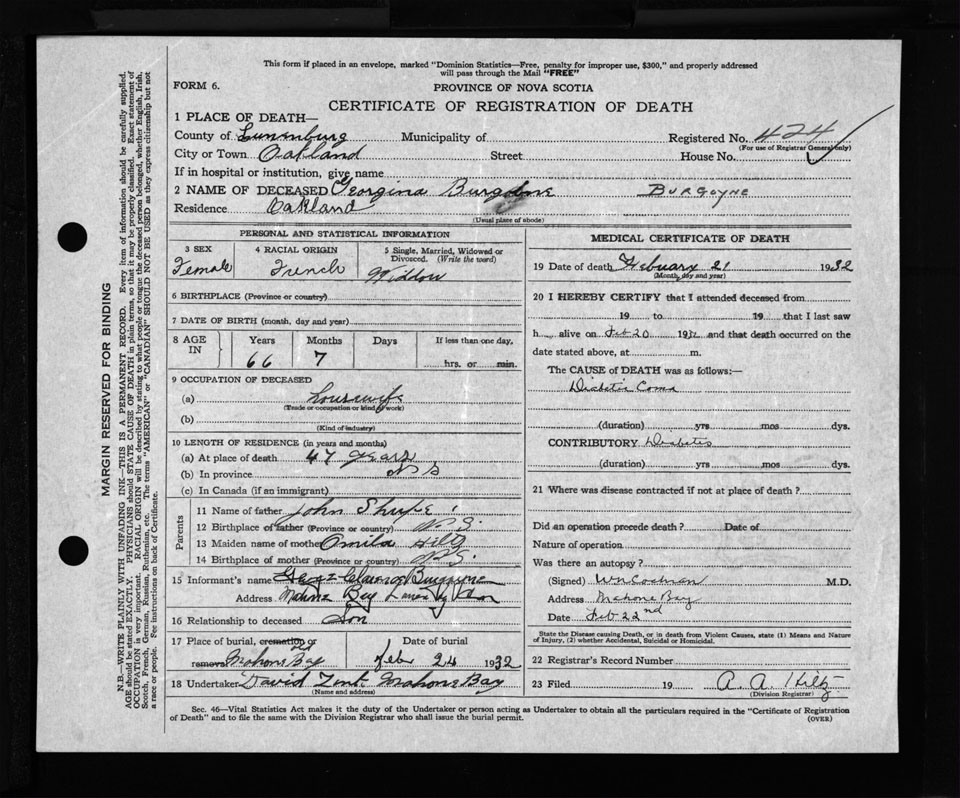 This form if placed in an envelope, marked "Dominion Statistics—Free, penalty for improper use, $300," and properly addressed
will pass through the Mail "FREE"
FORM 6.
PROVINCE OF NOVA SCOTIA
CERTIFICATE OF REGISTRATION OF DEATH
1 PLACE OF DEATH—
County of Lunenburg Municipality of Registered No. 424
(For use of Registrar General only)
City or Town Oakland Street House No.
If in hospital or institution, give name
2 NAME OF DECEASED Georgina Burgoyne BURGOYNE
Residence Oakland
(Usual place of abode)
PERSONAL AND STATISTICAL INFORMATION
3 SEX 4 RACIAL ORIGIN 5 Single, Married, Widowed or
Divorced. (Write the word)
Female French Widdow
6 BIRTHPLACE (Province or country)
7 DATE OF BIRTH (month, day and year)
8 AGE IN Years Months Days If less than one day,
66 7 hrs. or min.
9 OCCUPATION OF DECEASED
(a) housewife
(Trade or occupation or kind of work)
(b)
(Kind of industry)
10 LENGTH OF RESIDENCE (in years and months)
(a) At place of death 47 years
(b) In province N S
(c) In Canada (if an immigrant)
Parents
11 Name of father John Shupe
12 Birthplace of father (Province or country) N.S.
13 Maiden name of mother Omila Hiltz
14 Birthplace of mother (Province or country) N.S.
15 Informant's name Clarence Burgoyne
Address Mahone Bay
16 Relationship to deceased Son
17 Place of burial, cremation or Date of burial
removal Mahone Bay Feb 24 1932
18 Undertaker David Zink Mahone Bay
(Name and address)
MEDICAL CERTIFICATE OF DEATH
19 Date of death February 21 1932
(Month, day and year)
20 I HEREBY CERTIFY that I attended deceased from
19 to 19 that I last saw
h alive on Feb 20 1932 and that death occurred on the
date stated above, at m.
The CAUSE of DEATH was as follows:—
Diabetic Coma
(duration) yrs mos dys.
CONTRIBUTORY Diabetes
(duration) yrs mos dys.
21 Where was disease contracted if not at place of death?
Did an operation precede death? Date of
Nature of operation
Was there an autopsy?
(Signed) Wn Cochran M.D.
Address Mahone Bay
Date Feb 22nd
State the Disease causing Death, or in death from Violent Causes, state (1) Means and Nature
of Injury, (2) whether Accidental, Suicidal or Homicidal.
22 Registrar's Record Number
23 Filed 19 A. A. Hiltz
(Division Registrar)
Sec. 46—Vital Statistics Act makes it the duty of the Undertaker or person acting as Undertaker to obtain all the particulars required in the "Certificate of Registration
of Death" and to file the same with the Division Registrar who shall issue the burial permit.
(OVER)
MARGIN RESERVED FOR BINDING
N.B.—WRITE PLAINLY WITH UNFADING INK—THIS IS A PERMANENT RECORD. Every item of information should be carefully supplied.
AGE should be stated EXACTLY. PHYSICIANS should STATE CAUSE OF DEATH in plain terms, so that it may be properly classified. Exact statement of
OCCUPATION is very important. RACIAL ORIGIN will be described by stating to what people or tongue the deceased person belonged, whether English, Irish,
Scotch, French, German, Russian, Ruthenian, etc. The terms "AMERICAN" or "CANADIAN" SHOULD NOT BE USED as they express citizenship but not
a race or people. See instructions on back of Certificate.